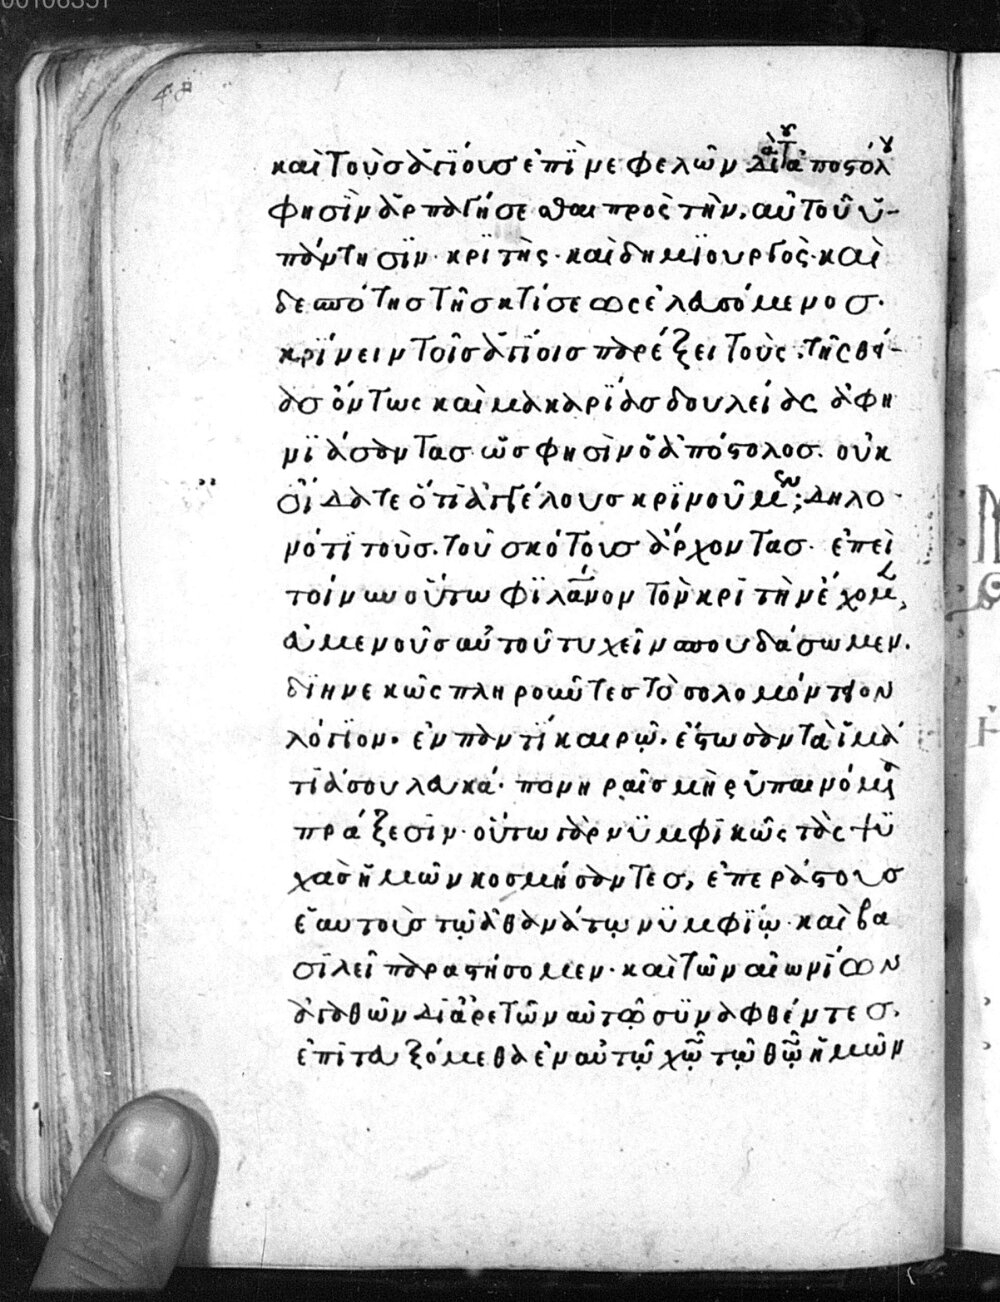 καὶ τοὺς ἁγίους ἐπὶ νεφελῶν διὰ τοῦ ἀποστόλου
φησὶν ἁρπαγήσεσθαι πρὸς τὴν αὐτοῦ ὑ-
πάντησιν· κριτὴς· καὶ δημιουργὸς· καὶ
δεσπότης τῆς κτίσεως ἐλασόμενος·
κρίνειν τοῖς ἁγίοις παρέξει τοὺς τῆς
ὄντως καὶ μακαρίας δουλείας ἀφη
νιάσαντας· ὥς φησὶν ὁ ἀπόστολος· οὐκ
οἴδατε ὅτι ἀγγέλους κρινοῦμεν; δηλο
νότι τοὺς τοῦ σκότους ἄρχοντας· ἐπεὶ
τοίνυν οὕτω φιλάνον τὸν κριτὴν ἔχομεν,
εὐμενοῦς αὐτοῦ τυχεῖν σπουδάσωμεν·
διηνεκῶς πληροῦντες τὸ σολομόντιον
λόγιον· ἐν παντὶ καιρῷ· ἔστωσαν τὰ ἱμά
τιά σου λευκά· πονηραῖς μὴ συπαινόμενα
πράξεσιν· οὕτω γὰρ νυμφικῶς τὰς ψυ
χὰς ἡμῶν κοσμήσαντες, ἐπεράστους
ἑαυτοὺς τῷ ἀθανάτῳ νυμφίῳ· καὶ βα
σιλεῖ παραστήσομεν· καὶ τῶν αἰωνίων
ἀγαθῶν δι' ἀρετῶν αὐτῷ συναφθέντες,
ἐπιτευξόμεθα ἐν αὐτῷ χῷ τῷ θῷ ἡμῶν